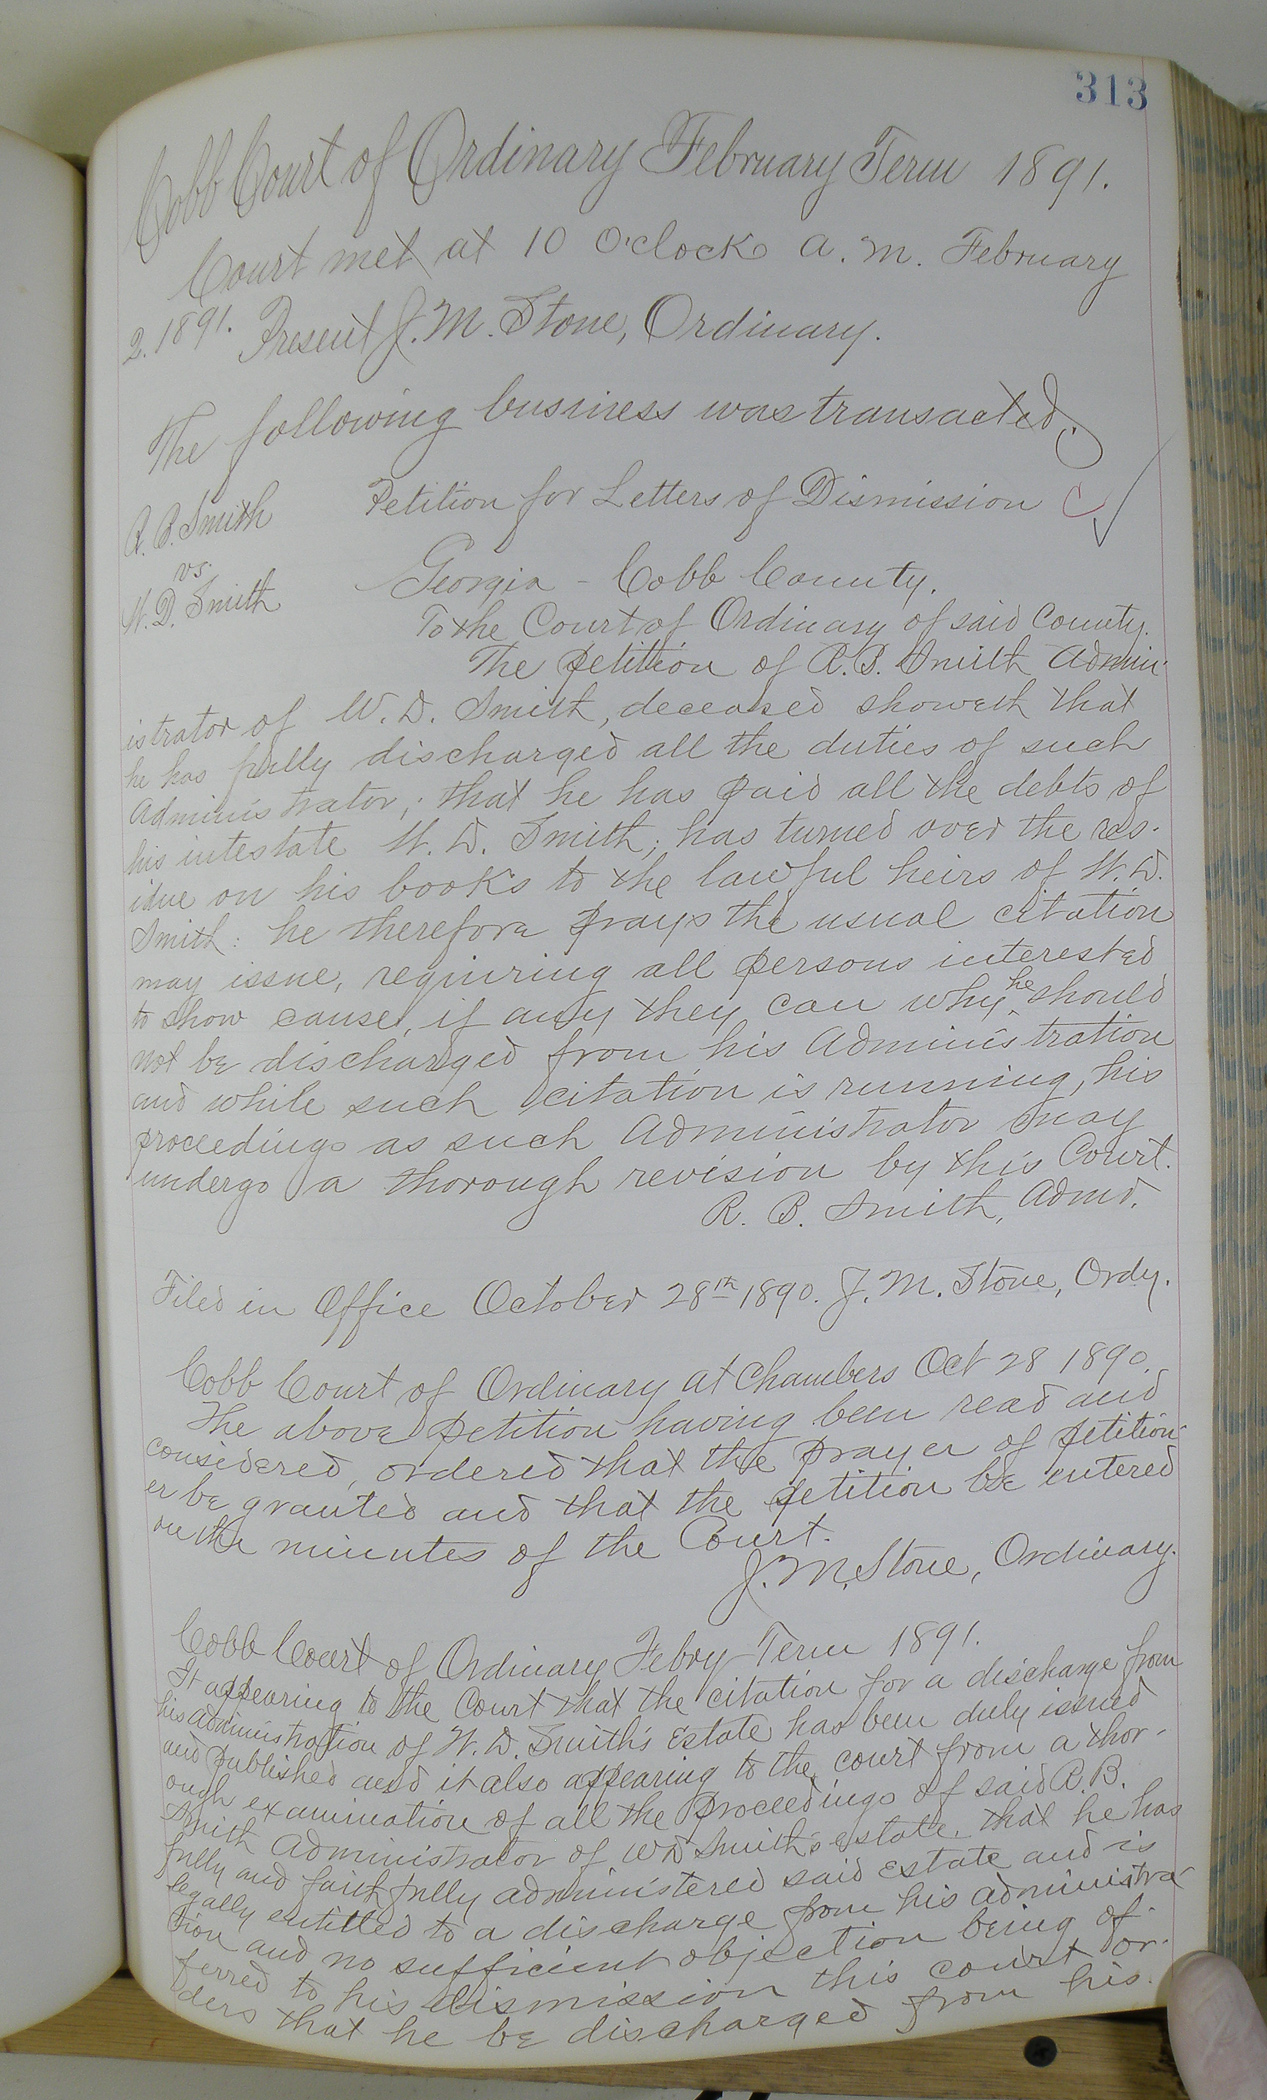 313
Cobb Court of Ordinary February Term 1891.
Court met at 10 O'clock A. M. February
2. 1891. Present J. M. Stone, Ordinary.
The following business was transacted.
R. B. Smith
vs.
W. D. Smith
Petition for Letters of Dismission
Georgia - Cobb County.
To the Court of Ordinary of said County.
The petition of R. B. Smith Admin-
istrator of W. D. Smith, deceased showeth that
he has fully discharged all the duties of such
Administrator; that he has paid all the debts of
his intestate W. D. Smith; has turned over the res-
idue on his books to the lawful heirs of W. D.
Smith: he therefore prays the usual citation
may issue, requiring all persons interested
to show cause, if any they can why he should
not be discharged from his Administration
and while such citation is running, his
proceedings as such Administrator may
undergo a thorough revision by this Court.
R. B. Smith, Admr.
Filed in Office October 28th 1890. J. M. Stone, Ordy.
Cobb Court of Ordinary at Chambers Oct 28 1890.
The above petition having been read and
considered, ordered that the prayer of petition-
er be granted and that the petition be entered
on the minutes of the Court.
J. M. Stone, Ordinary.
Cobb Court of Ordinary Febry Term 1891.
It appearing to the Court that the citation for a discharge from
his administration of W. D. Smith's Estate has been duly issued
and published and it also appearing to the court from a thor-
ough examination of all the proceedings of said R. B.
Smith Administrator of W D Smith's estate, that he has
fully and faithfully administered said estate and is
legally entitled to a discharge from his administra-
tion and no sufficient objection being of-
ferred to his dismission this court or-
ders that he be discharged from his